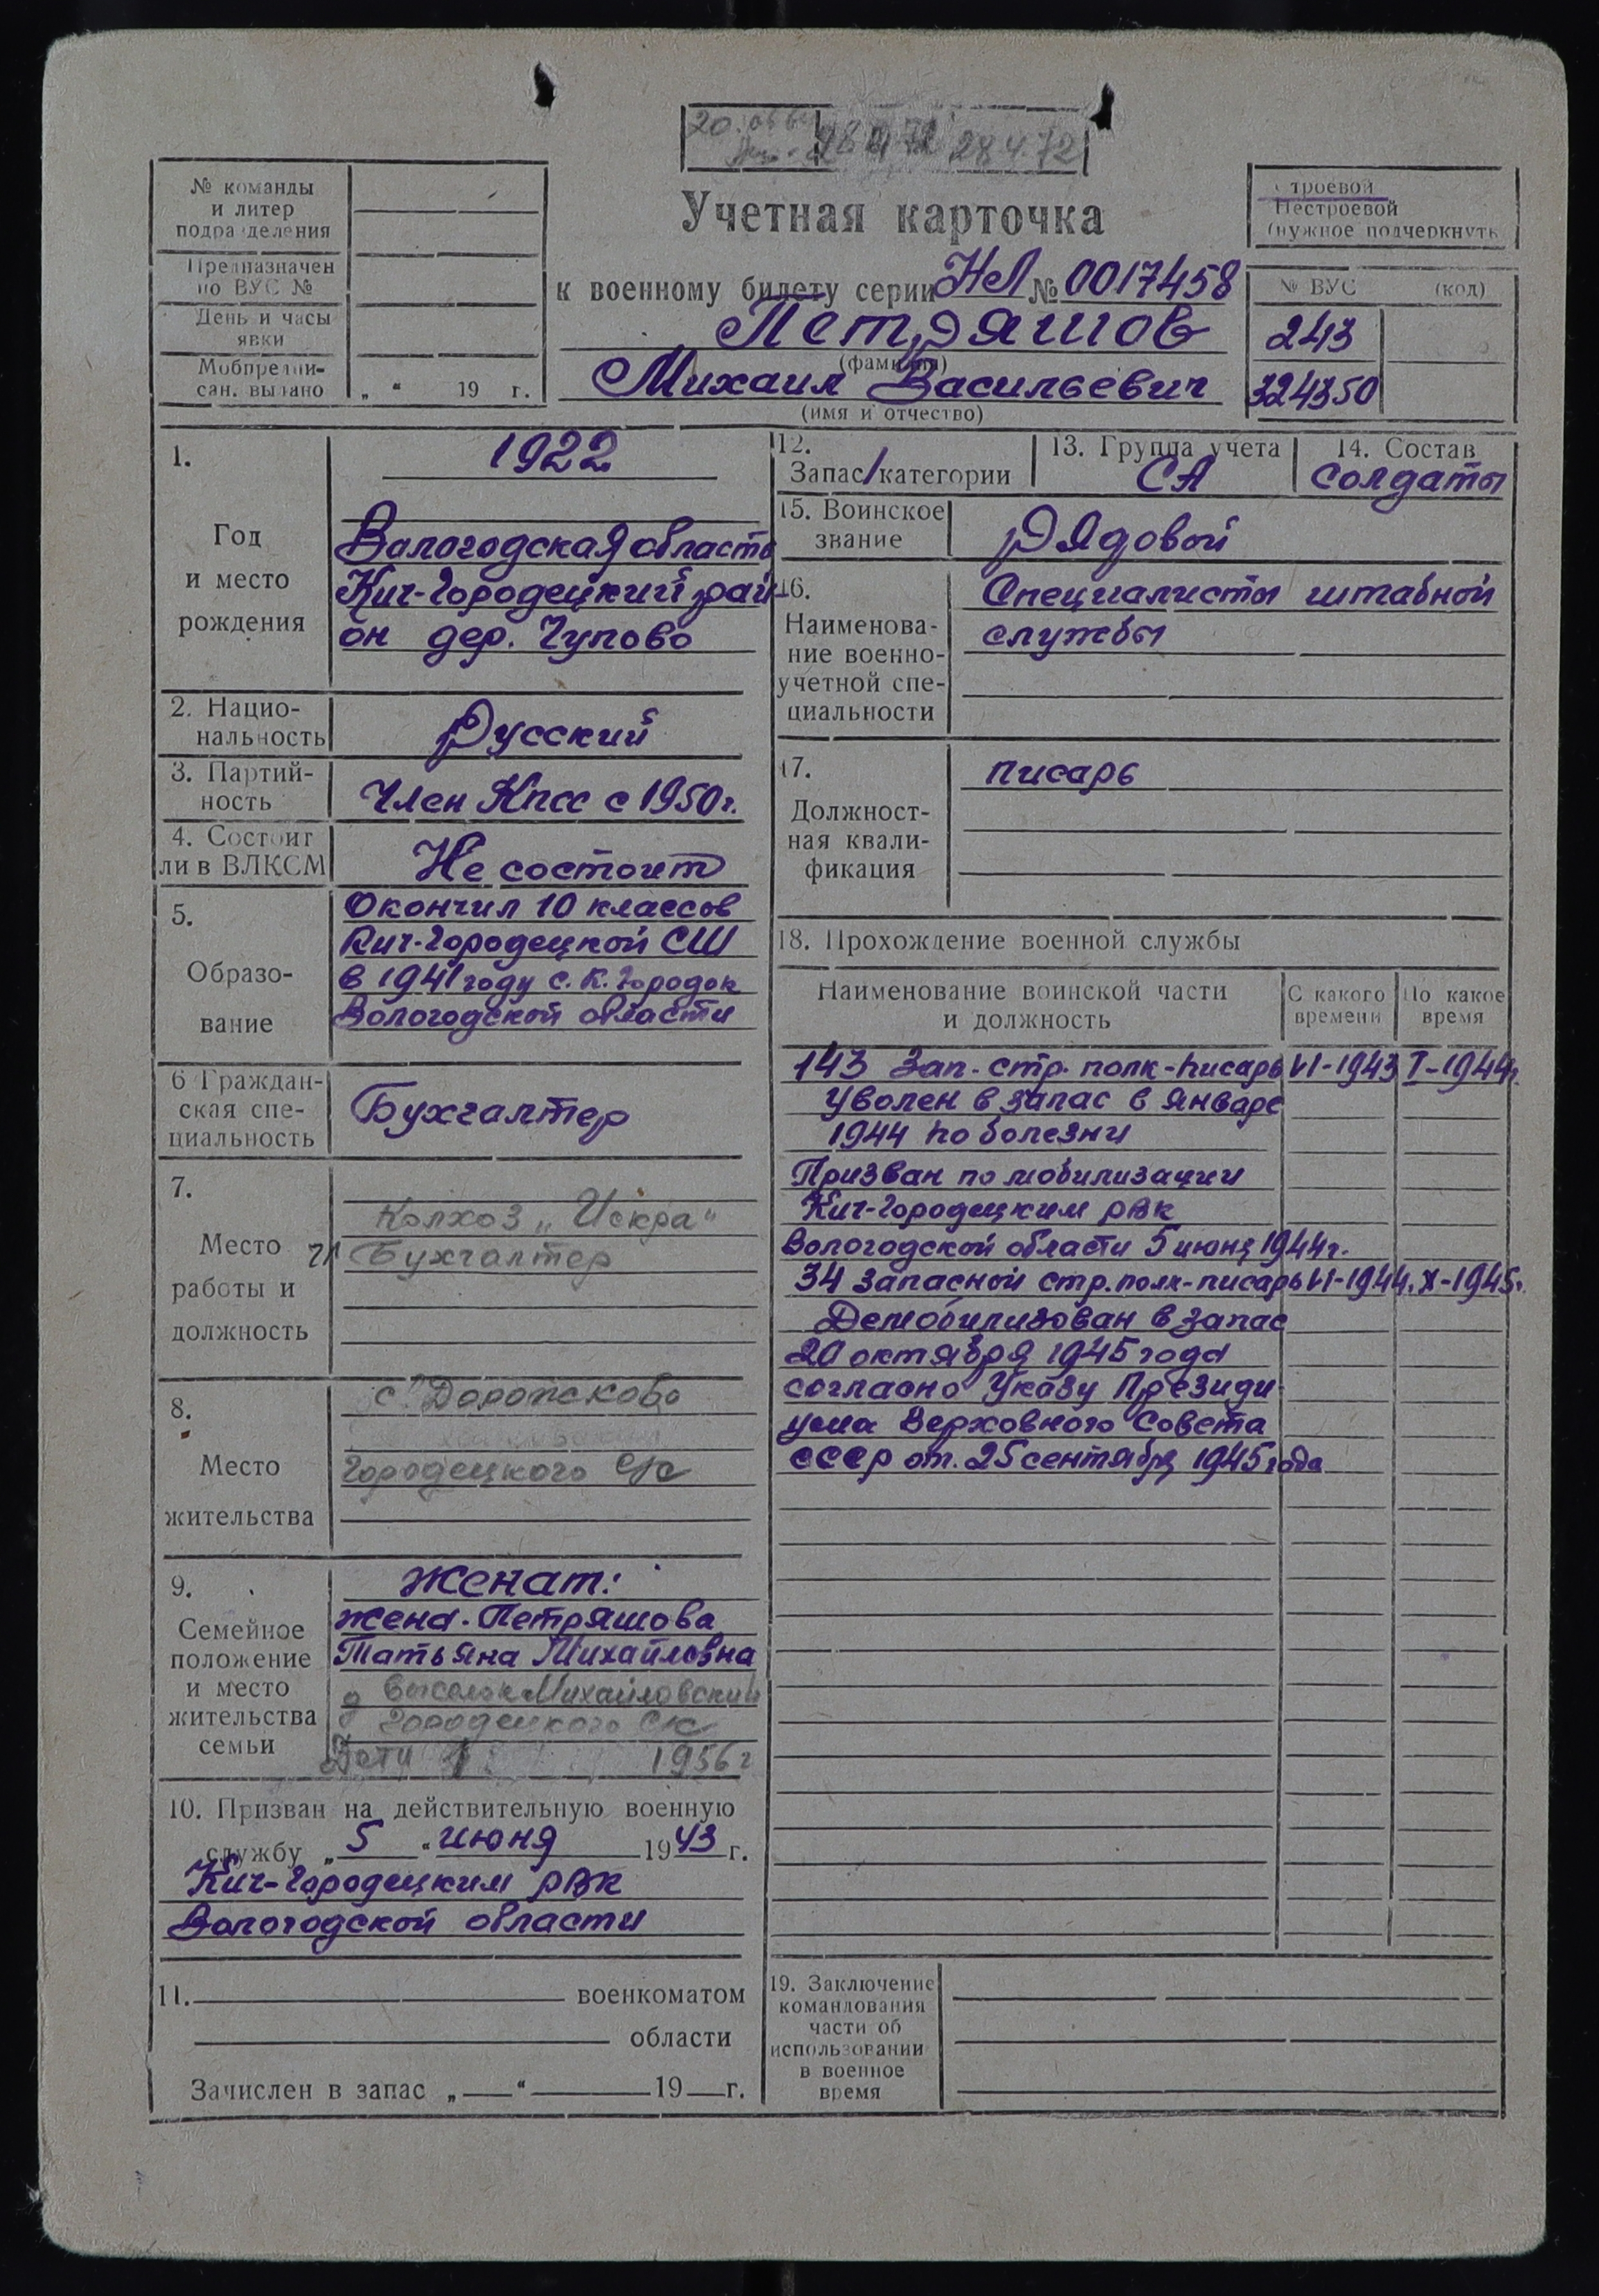 28 4.72
Учетная карточка
№ команды
и литер
подразделения
Предназначен
по ВУС №
День и часы
явки
Мобпредпи-
сан. выдано „ “ 19 г.
Строевой
Нестроевой
(нужное подчеркнуть
к военному билету серии НЛ № 0017458
Петряшов
(фамилия)
Михаил Васильевич
(имя и отчество)
№ ВУС (код)
243
324350
1.
Год
и место
рождения
1922
Вологодская область
Кич-Городецкий рай-
он дер. Чупово
2. Нацио-
нальность
Русский
3. Партий-
ность
Член Кпсс с 1950 г.
4. Состоит
ли в ВЛКСМ
Не состоит
5.
Образо-
вание
Окончил 10 классов
Кич-Городецкой СШ
в 1941 году с. К. Городок
Вологодской области
6 Граждан-
ская спе-
циальность
Бухгалтер
7.
Место
работы и
должность
Колхоз „Искра“
Бухгалтер
8.
Место
жительства
с. Дорожково
Городецкого с/с
9.
Семейное
положение
и место
жительства
семьи
Женат:
жена - Петряшова
Татьяна Михайловна
Михайловский
Городецкого с/с
Дети 1956 г
10. Призван на действительную военную
службу „ 5 “ июня 1943 г.
Кич-Городецким РВК
Вологодской области
11. военкоматом
области
Зачислен в запас „ “ 19 г.
12.
Запас/категории
13. Группа учета
СА
14. Состав
солдаты
15. Воинское
звание
Рядовой
16.
Наименова-
ние военно-
учетной спе-
циальности
Специалисты штабной
службы
17.
Должност-
ная квали-
фикация
писарь
18. Прохождение военной службы
Наименование воинской части
и должность
С какого
времени
По какое
время
143 Зап. стр. полк - писарь VI-1943 I-1944г.
Уволен в запас в январе
1944 по болезни
Призван по мобилизации
Кич-Городецким РВК
Вологодской области 5 июня 1944г.
34 запасной стр. полк - писарь VI-1944. X-1945г.
Демобилизован в запас
20 октября 1945 года
согласно Указу Президи
ума Верховного Совета
СССР от. 25 сентября 1945 года
19. Заключение
командования
части об
использовании
в военное
время